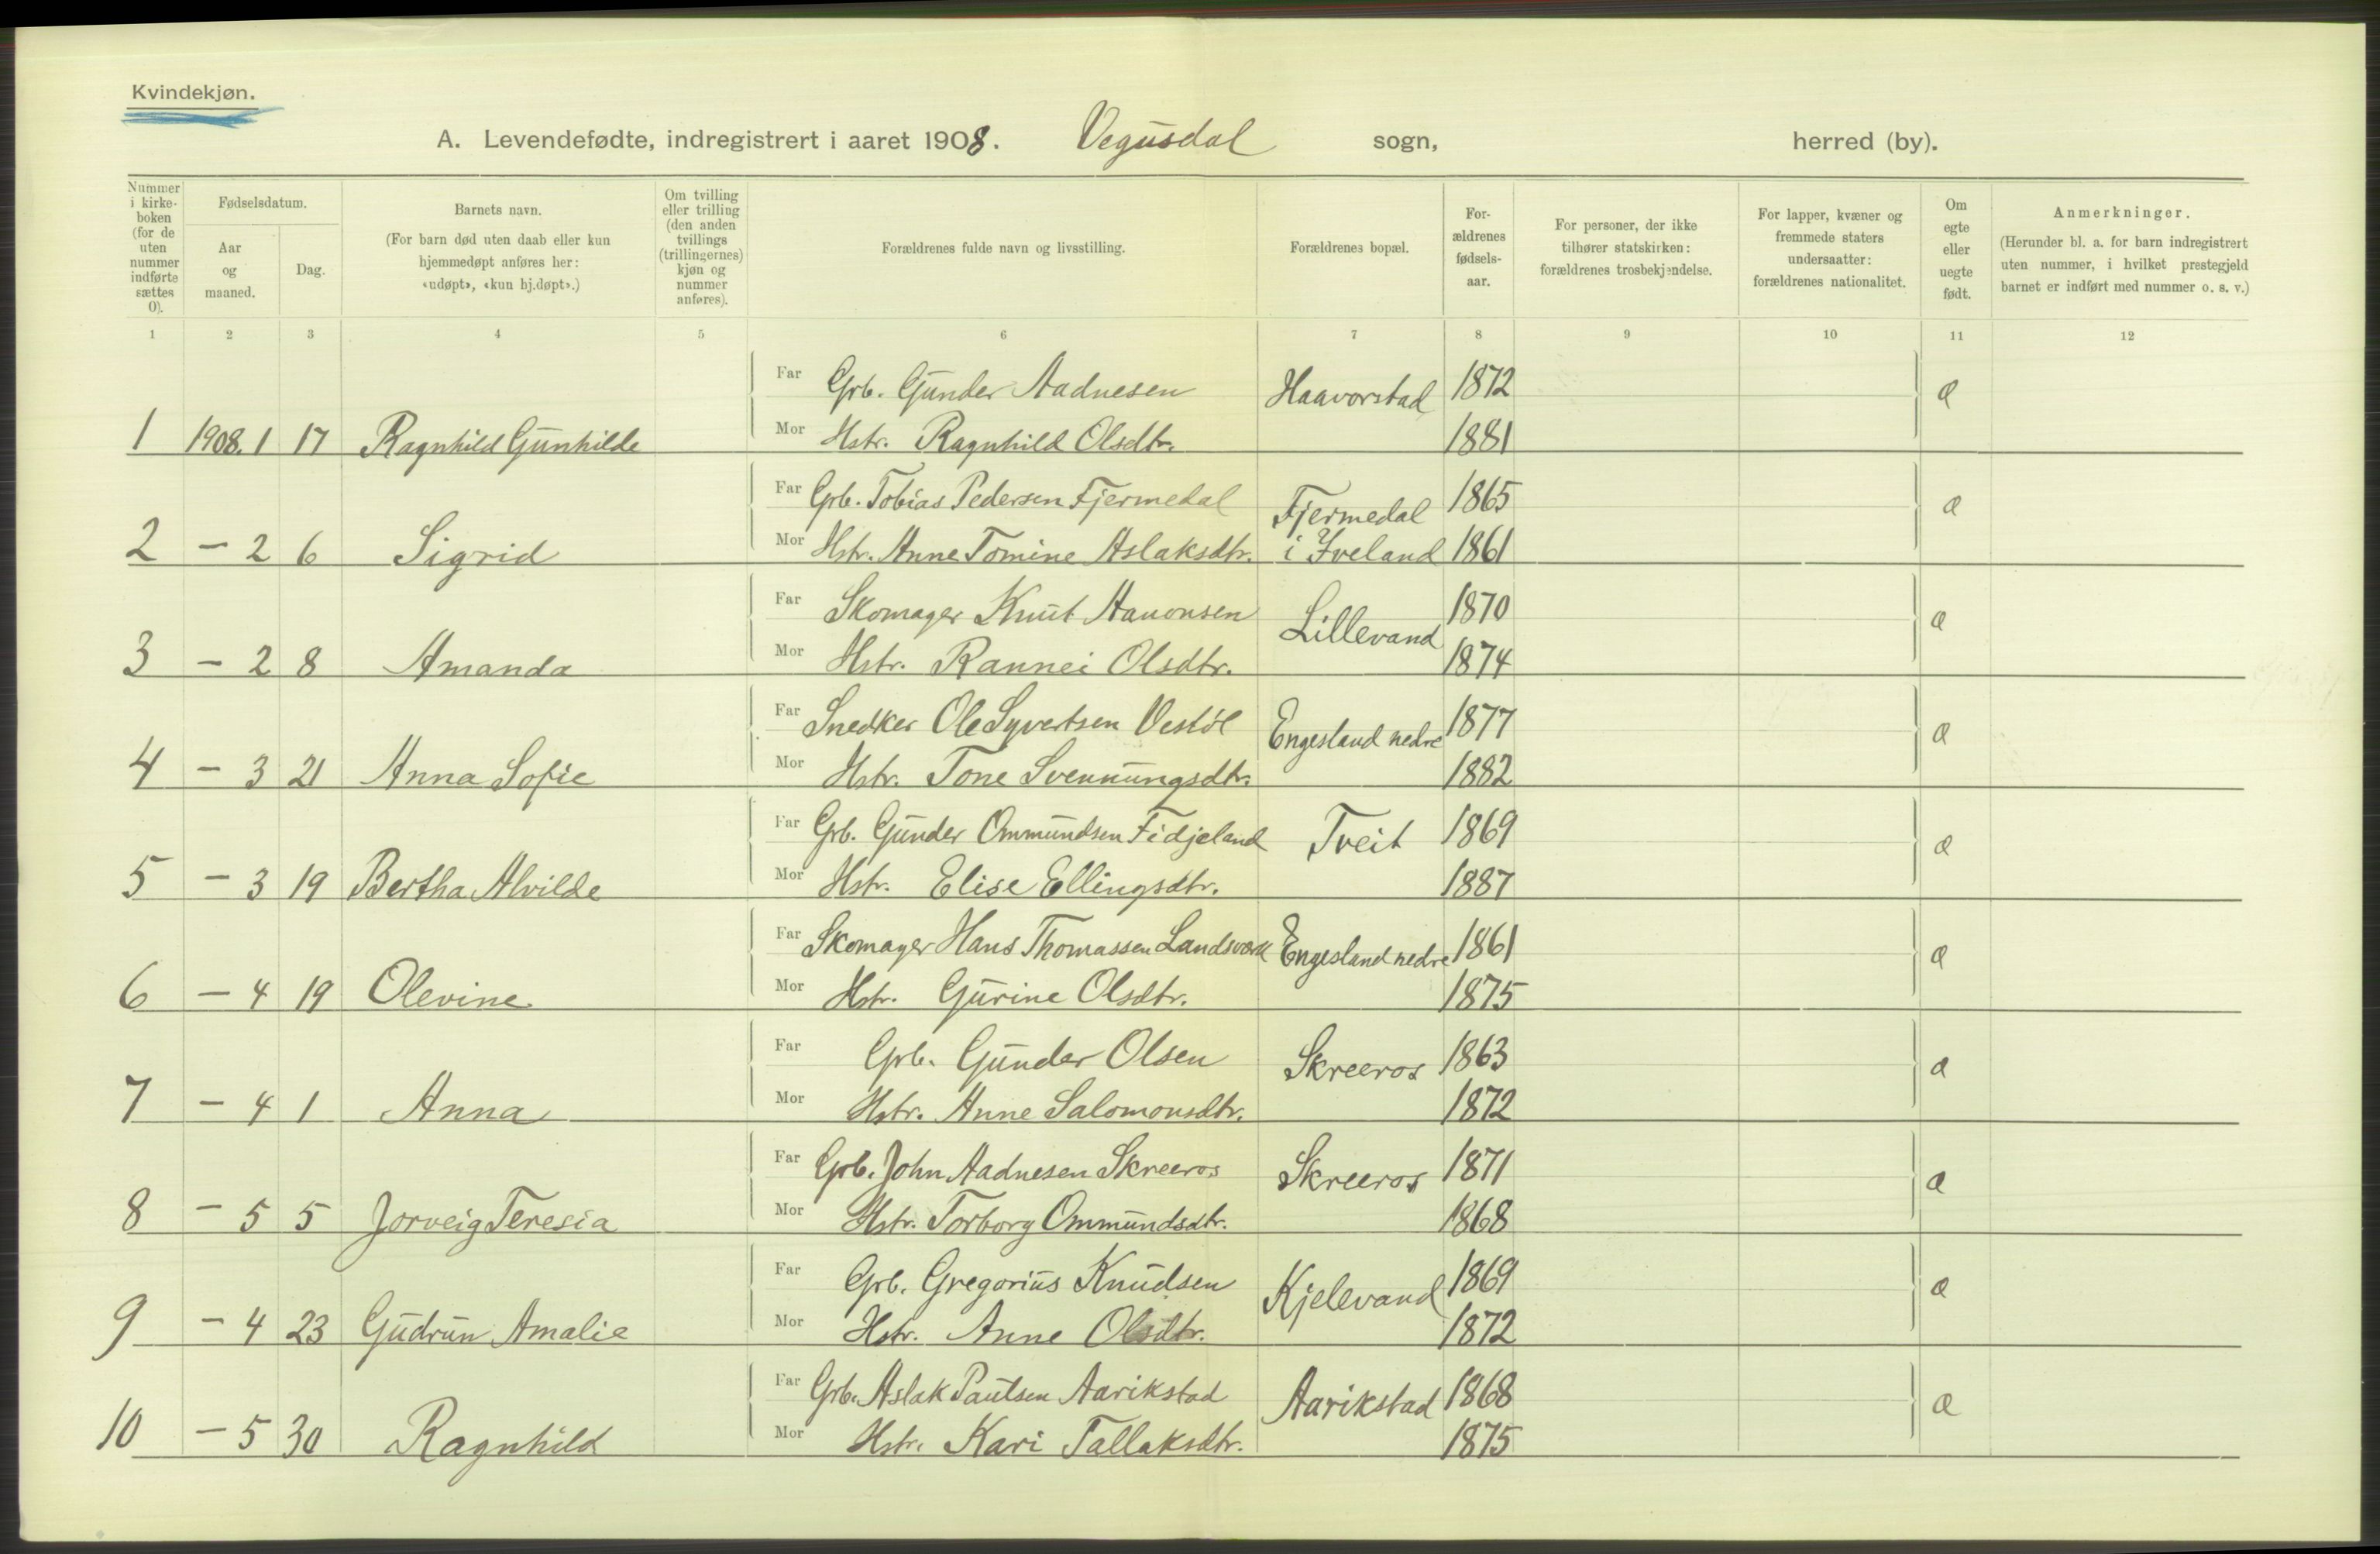 Kvindekjøn.
A. Levendefødte, indregistrert i aaret 1908. Vegusdal sogn, herred (by).
Nummer i kirke-boken (for de uten nummer indførte sættes 0).
Fødselsdatum.
Aar og maaned.
Dag.
Barnets navn.
(For barn død uten daab eller kun hjemmedøpt anføres her: «udøpt», «kun hj.døpt».)
Om tvilling eller trilling (den anden tvillings (trillingernes) kjøn og nummer anføres).
Forældrenes fulde navn og livsstilling.
Forældrenes bopæl.
For-ældrenes fødsels-aar.
For personer, der ikke tilhører statskirken: forældrenes trosbekjendelse.
For lapper, kvæner og fremmede staters undersaatter: forældrenes nationalitet.
Om egte eller uegte født.
Anmerkninger.
(Herunder bl. a. for barn indregistrert uten nummer, i hvilket prestegjeld barnet er indført med nummer o. s. v.)
1 2 3 4 5 6 7 8 9 10 11 12
Far Grb. Gunder Aadnesen Haavorstad 1872 æ
1 1908.1 17 Ragnhild Gunhilde Mor Hstr. Ragnhild Olsdtr. 1881
Far Grb. Tobias Pedersen Fjermedal Fjermedal 1865 æ
2 – 2 6 Sigrid Mor Hstr. Anne Tomine Aslaksdtr. i Iveland 1861
Far Skomager Knut Aanonsen Lillevand 1870 æ
3 – 2 8 Amanda Mor Hstr. Rannei Olsdtr. 1874
Far Snedker Ole Syvertsen Vestøl Engesland nedre 1877 æ
4 – 3 21 Anna Sofie Mor Hstr. Tone Svennungsdtr. 1882
Far Grb. Gunder Ommundsen Fidjeland Tveit 1869 æ
5 – 3 19 Bertha Alvilde Mor Hstr. Elise Ellingsdtr. 1887
Far Skomager Hans Thomassen Landsværk Engesland nedre 1861 æ
6 – 4 19 Olevine Mor Hstr. Gurine Olsdtr. 1875
Far Grb. Gunder Olsen Skreeros 1863 æ
7 – 4 1 Anna Mor Hstr. Anne Salomonsdtr. 1872
Far Grb. John Aadnesen Skreeros Skreeros 1871 æ
8 – 5 5 Jorveig Teresia Mor Hstr. Torborg Ommundsdtr. 1868
Far Grb. Gregorius Knudsen Kjelevand 1869 æ
9 – 4 23 Gudrun Amalie Mor Hstr. Anne Olsdtr. 1872
Far Grb. Aslak Paulsen Aarikstad Aarikstad 1868 æ
10 – 5 30 Ragnhild Mor Hstr. Kari Tallaksdtr. 1875